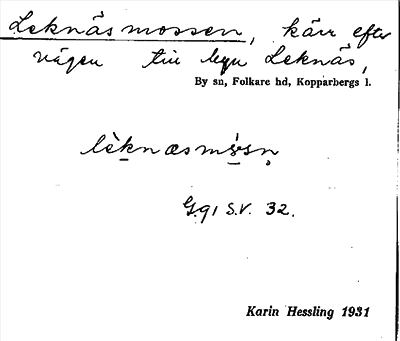 Leknäsmossen, kärr efter
vägen till byn Leknäs,
By sn, Folkare hd, Kopparbergs l.
lèknæsmåsn̥
Gql S.V. 32.
Karin Hessling 1931